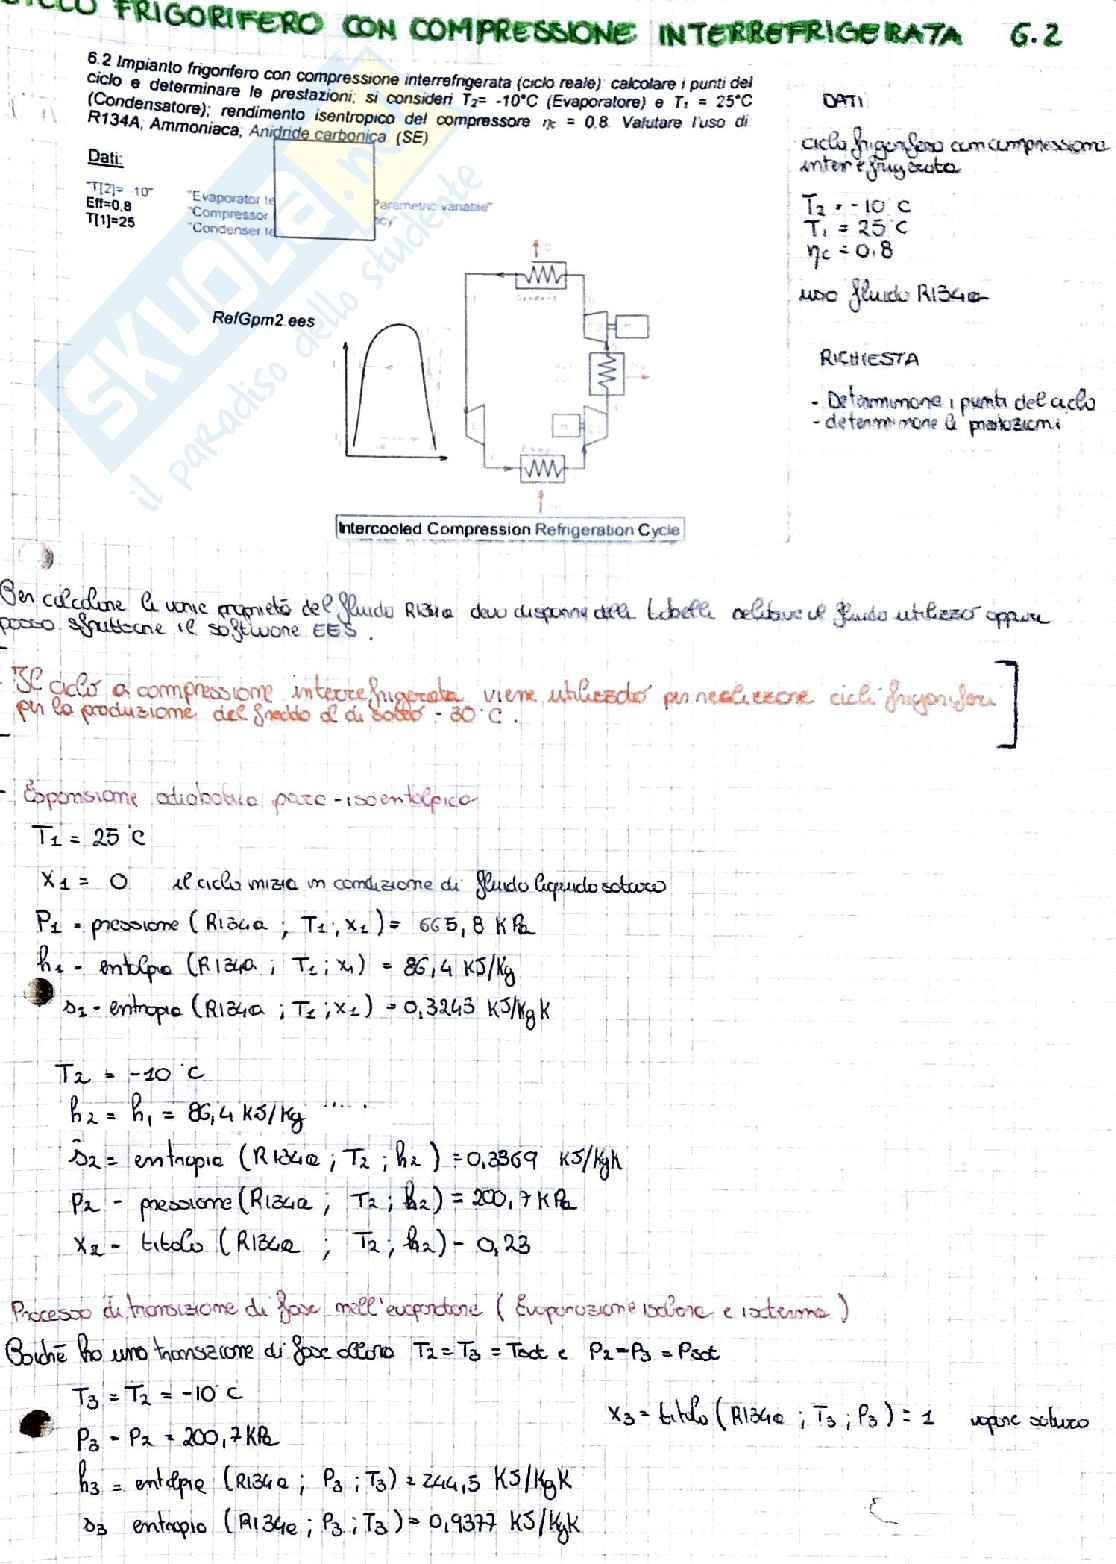 CICLO FRIGORIFERO CON COMPRESSIONE INTERREFRIGERATA 6.2
6.2 Impianto frigorifero con compressione interrefrigerata (ciclo reale): calcolare i punti del
ciclo e determinare le prestazioni; si consideri T2= -10°C (Evaporatore) e T1 = 25°C
(Condensatore); rendimento isentropico del compressore ηc = 0.8. Valutare l'uso di
R134A, Ammoniaca, Anidride carbonica (SE)
Dati:
"T[2]= 10" "Evaporator te Parametric variable"
Eff=0,8 "Compressor cy
T[1]=25 "Condenser te
RefGpm2.ees
Intercooled Compression Refrigeration Cycle
DATI
ciclo frigorifero con compressione
interrefrigerata
T2 = -10°C
T1 = 25°C
ηc = 0.8
uso fluido R134a
RICHIESTA
- Determinare i punti del ciclo
- determinare le prestazioni
SKUOLA.net
il paradiso dello studente
Per calcolare le varie proprietà del fluido R134a devo disporre delle tabelle relative al fluido utilizzo oppure
posso sfruttare il software EES.
Il ciclo a compressione interrefrigerata viene utilizzato per realizzare cicli frigoriferi
per la produzione del freddo al di sotto -30°C.
- Espansione adiabatica para-isoentalpica
T1 = 25°C
x1 = 0 il ciclo inizia in condizione di fluido liquido saturo
P1 = pressione (R134a ; T1 ; x1) = 665,8 KPa
h1 = entalpia (R134a ; T1 ; x1) = 86,4 KJ/Kg
s1 = entropia (R134a ; T1 ; x1) = 0,3243 KJ/KgK
T2 = -10°C
h2 = h1 = 86,4 KJ/Kg ....
s2 = entropia (R134a ; T2 ; h2) = 0,3369 KJ/KgK
P2 = pressione (R134a ; T2 ; h2) = 200,7 KPa
x2 = titolo (R134a ; T2 ; h2) = 0,23
Processo di transizione di fase nell'evaporatore (Evaporazione isobara e isoterma)
Poiché ho una transizione di fase allora T2 = T3 = Tsat e P2 = P3 = Psat
T3 = T2 = -10°C
x3 = titolo (R134a ; T3 ; P3) = 1 vapore saturo
P3 = P2 = 200,7 KPa
h3 = entalpia (R134a ; P3 ; T3) = 244,5 KJ/KgK
s3 entropia (R134a ; P3 ; T3) = 0,9377 KJ/KgK